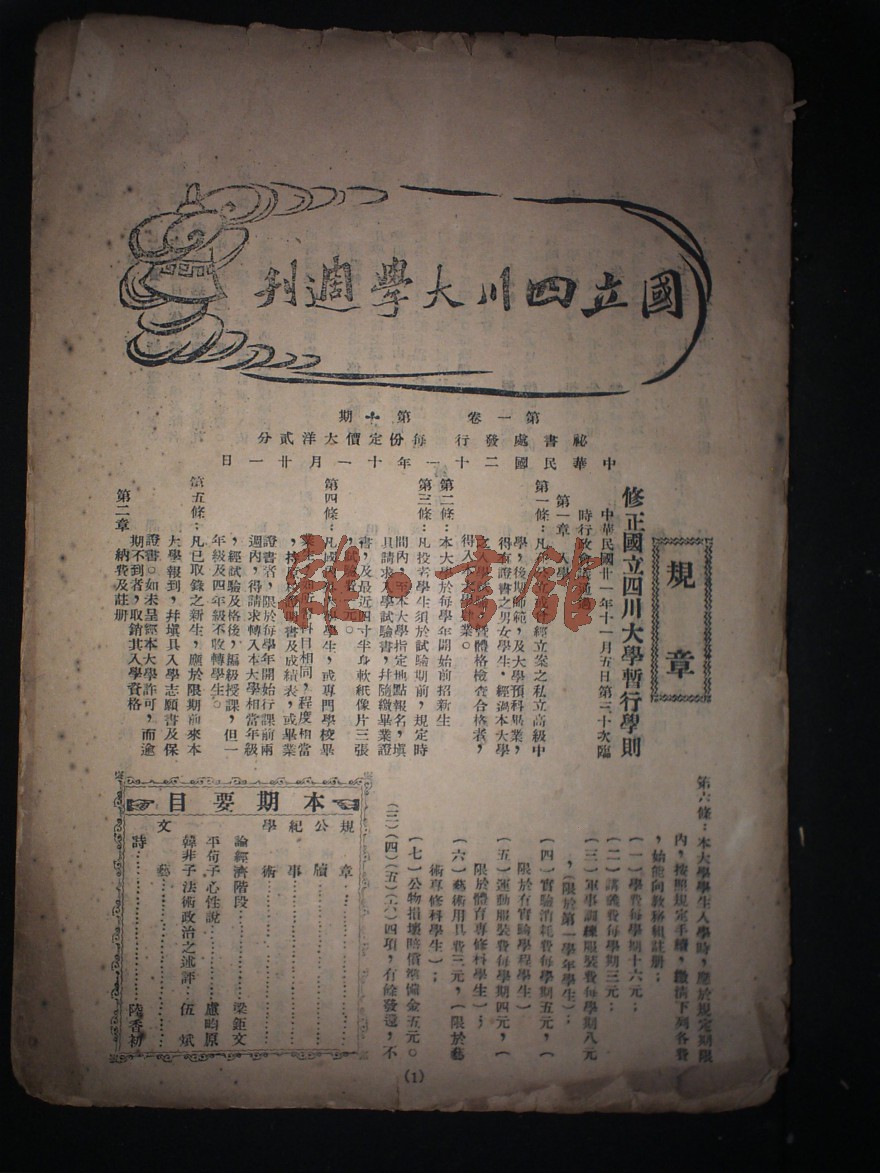 國立四川大學週刊
第一卷 第十期
祕書處發行 每份定價大洋貳分
中華民國二十一年十一月廿一日
規章
修正國立四川大學暫行學則
中華民國廿一年十一月五日第三十次臨
時行政會議通過
第一章 入學
第一條:凡
立案之私立高級中
學,後期師範,及大學預科畢業,
得有證書之男女學生,經過本大學
入學試驗暨體格檢查合格者,
得入本大學肄業。
第二條:本大學於每學年開始前招新生
第三條:凡投考學生須於試驗期前,規定時
間內,至本大學指定地點報名,填
具請求入學試驗書,幷隨繳畢業證
書,及最近四寸半身軟紙像片三張
,試驗費 元。
第四條:凡國
大學學生,或專門學校畢
業生
科目相同,程度相當
,持
證明書及成績表,或畢業
證書者,限於每學年開始行課前兩
週內,得請求轉入本大學相當年級
,經試驗及格後,編級授課,但一
年級及四年級不收轉學生。
第五條:凡已取錄之新生,應於限期前來本
大學報到,幷填具入學志願書及保
證書。如未呈經本大學許可,而逾
期不到者,取銷其入學資格
第二章 納費及註冊
第六條:本大學學生入學時,應於規定期限
內,按照規定手續,繳淸下列各費
,始能向敎務組註冊:
(一)學費每學期十六元;
(二)講義費每學期三元;
(三)軍事訓練服裝費每學期八元
,(限於第一學年學生);
(四)實驗消耗費每學期五元,(
限於有實驗學程學生)
(五)運動服裝費每學期四元,(
限於體育專修科學生);
(六)藝術用具費三元,(限於藝
術專修科學生);
(七)公物損壞賠償準備金五元。
(三)(四)(五)(六)四項,有餘發還,不
本期要目
規章
公牘
紀事
學術
論經濟階段 梁鉅文
平荀子心性說 盧畇原
韓非子法術政治之述評 伍斌
文藝
詩 陸香初
(1)
龍•書館